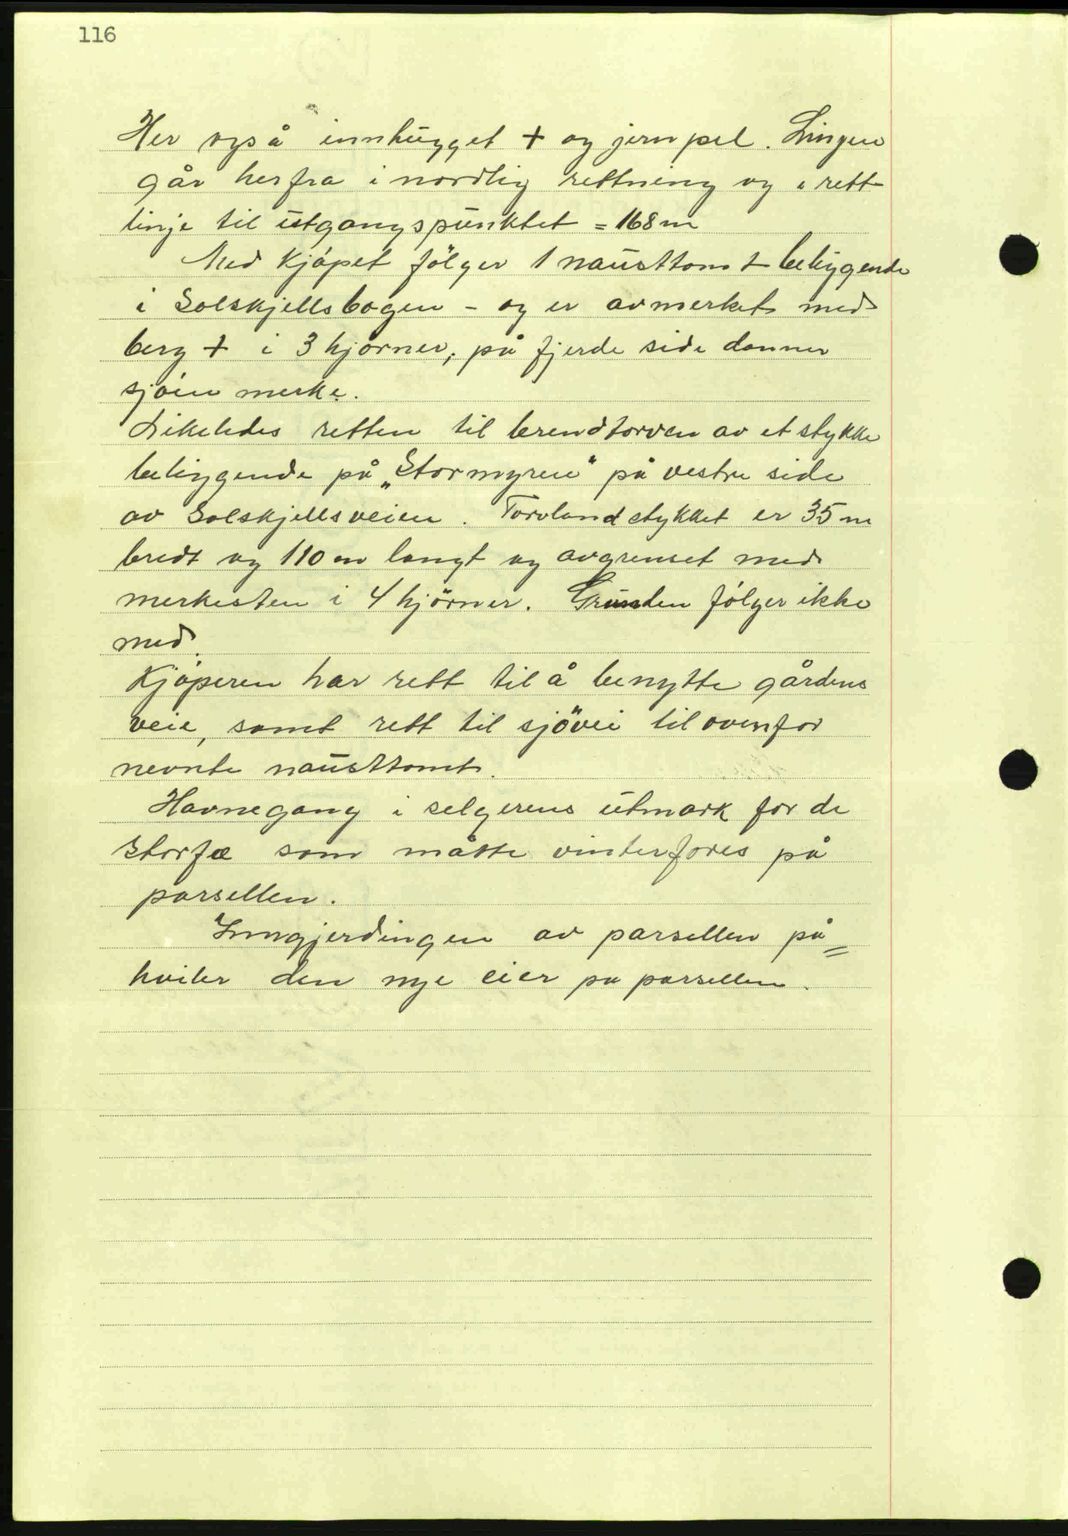 116
Her også innhugget + og jernpel. Lingen
går herfra i nordlig rettning og i rett
linje til utgangspunktet = 168 m
Med kjøpet følger 1 nausttomt beliggende
i Solskjellsbogen - og er avmerket med
berg + i 3 hjørner, på fjerde side danner
sjøen merke.
Likeledes retten til brendtorven av et stykke
beliggende på „Stormyren" på vestre side
av Solskjellsveien. Torvlandstykket er 35 m
bredt og 110 m langt og avgrenset med
merkesten i 4 hjörner. Grunden følger ikke
med.
Kjøperen har rett til å benytte gårdens
veie, samt rett til sjövei til ovenfor
nevnte nausttomt.
Havnegang i selgerens utmark for de
Storfæ som måtte vinterfores på
parsellen.
Inngjerdingen av parsellen på=
hviler den nye eier pa parsellen.